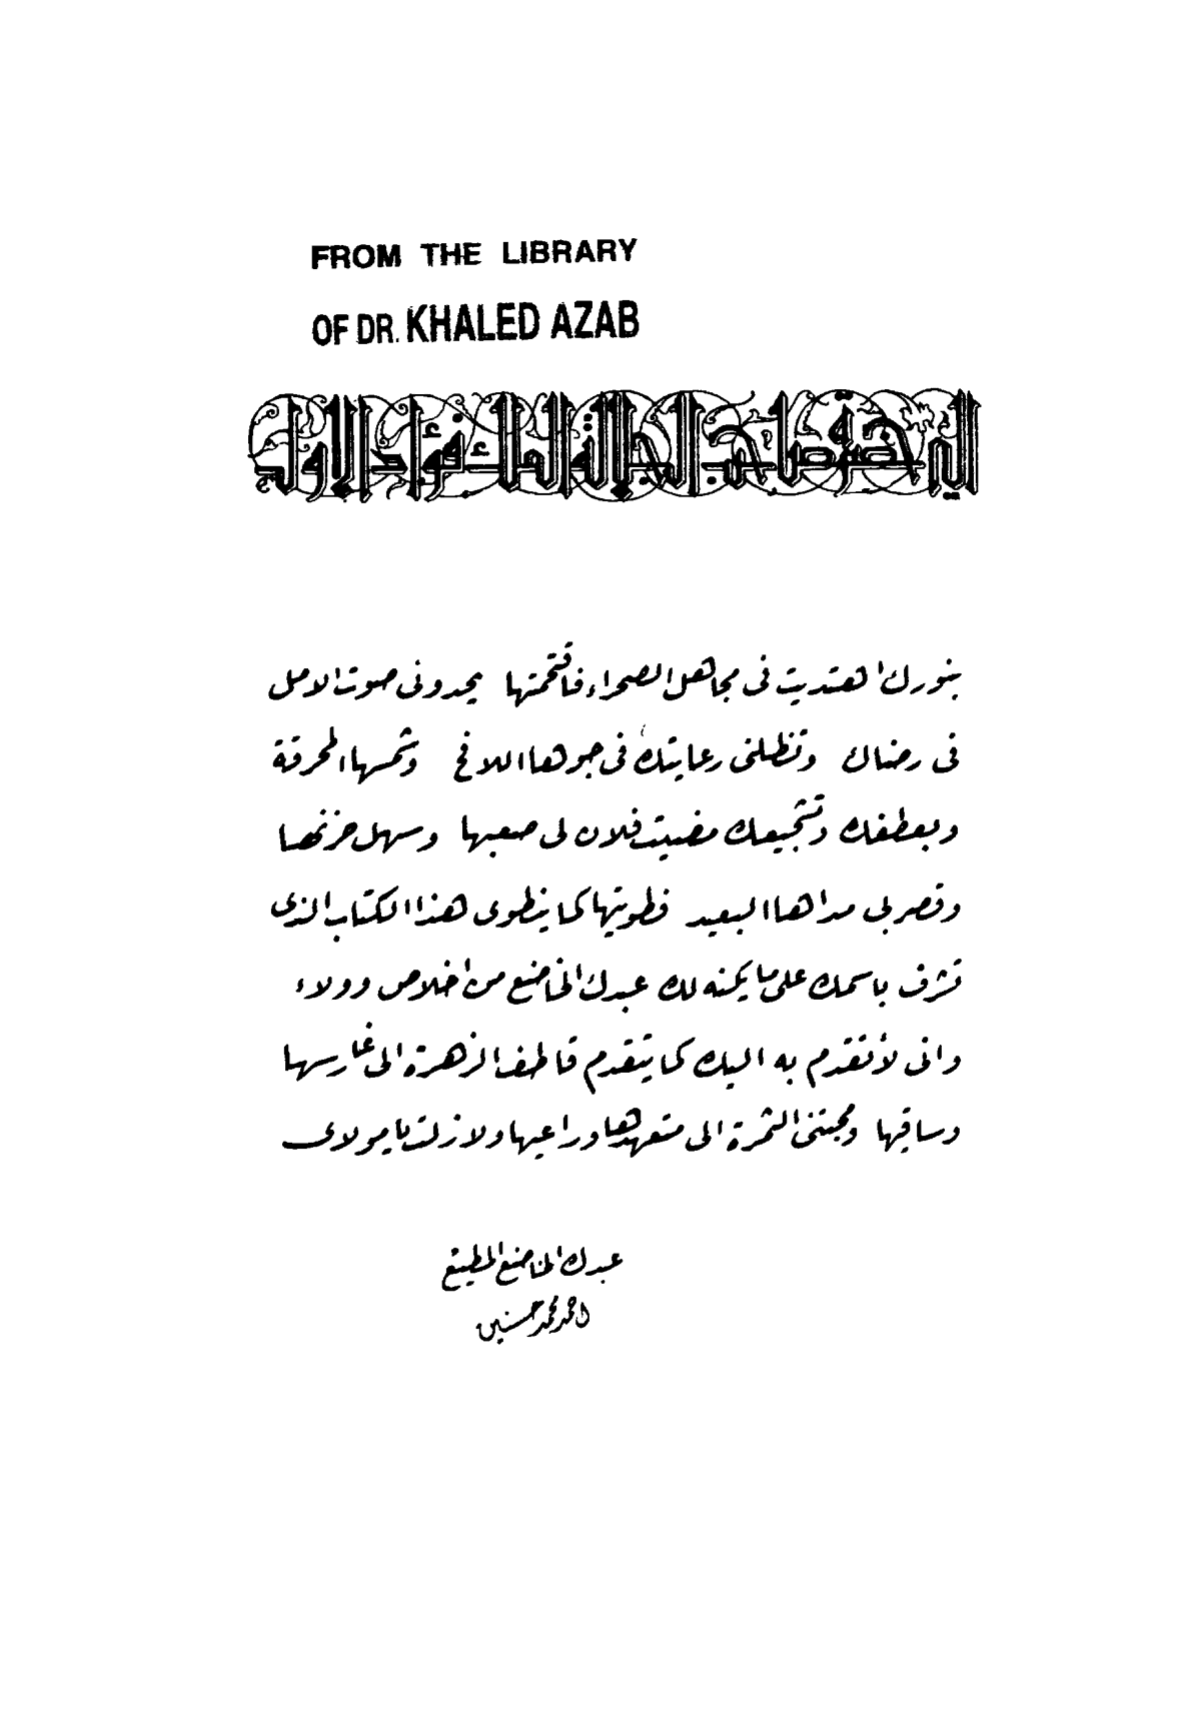 FROM THE LIBRARY
OF DR. KHALED AZAB
الى حضرة صاحب الجلالة الملك فؤاد الاول
بنورك اهتديت فى مجاهل الصحراء فاقتحمتها يحدونى صوت الامل
فى رضاك وتظلنى رعايتك فى جوها اللافح وشمسها المحرقة
وبعطفك وتشجيعك مضيت فلان لى صعبها وسهل حزنها
وقصر لى مداها البعيد فطويتها كما ينطوى هذا الكتاب الذى
تشرف باسمك على ما يكنه لك عبدك الخاضع من اخلاص وولاء
وانى لأتقدم به اليك كما يتقدم قاطف الزهرة الى غارسها
وساقيها ومجتنى الثمرة الى متعهدها وراعيها ولا زلت يا مولاى
عبدك الخاضع المطيع
احمد محمد حسنين